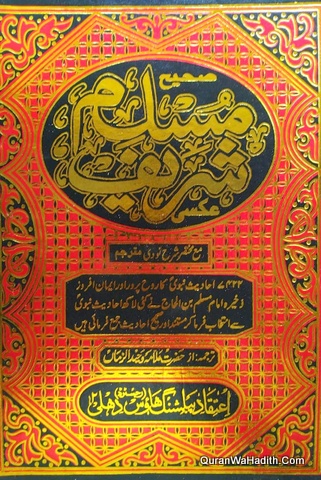 صحیح
مسلم
شریف
عکسی
مع مختصر شرح نووی مترجم
۷۴۲۲ احادیث نبوی کا روح پرور اور ایمان افروز
ذخیرہ امام مسلم بن الحجاج نے کئی لاکھ احادیث نبوی
سے انتخاب فرما کر مستند اور صحیح احادیث جمع فرمائی ہیں
ترجمہ: از حضرت علامہ وحید الزماں
اعتقاد پبلشنگ ہاؤس دھلی
QuranWaHadith.Com